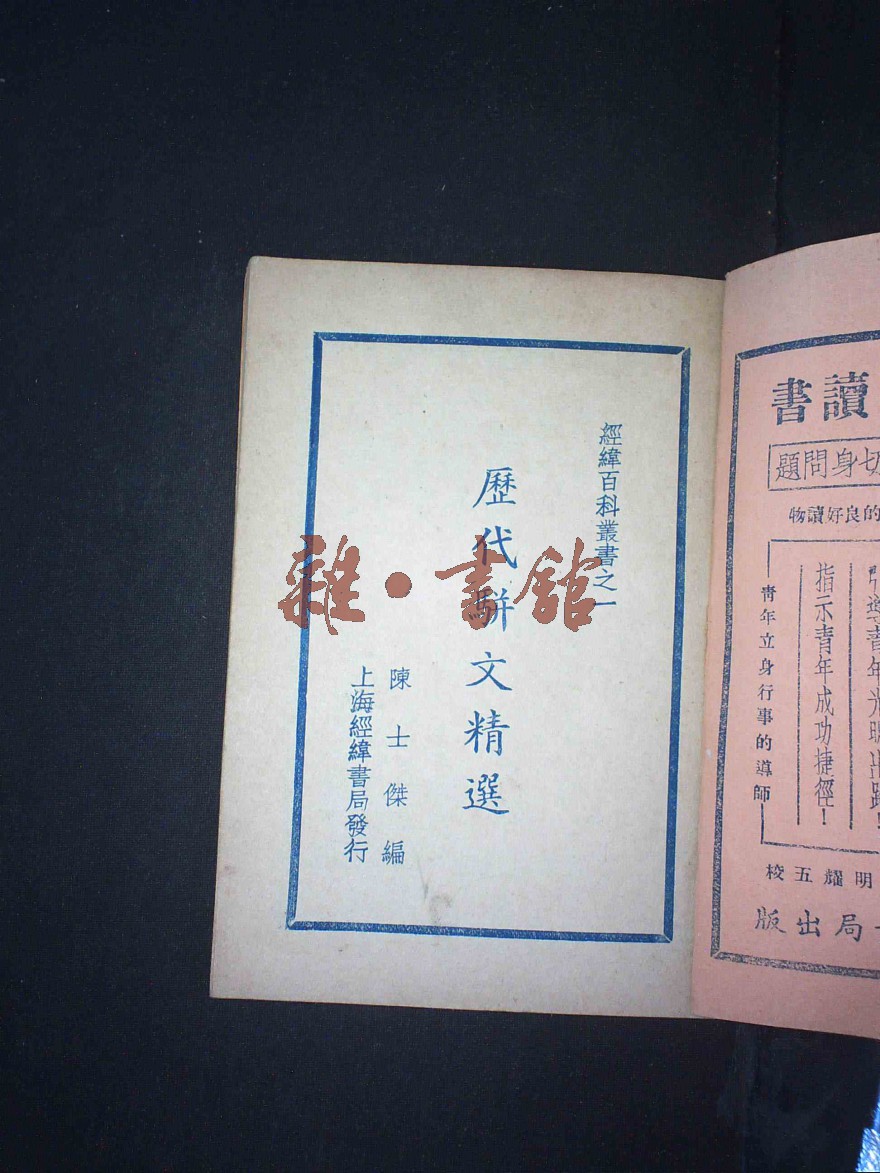 經緯百科叢書之一
歷代駢文精選
陳士傑編
上海經緯書局發行
雜·書館
讀書
切身問題
的良好讀物
引導青年光明出路！
指示青年成功捷徑！
青年立身行事的導師
明耀五校
局出版